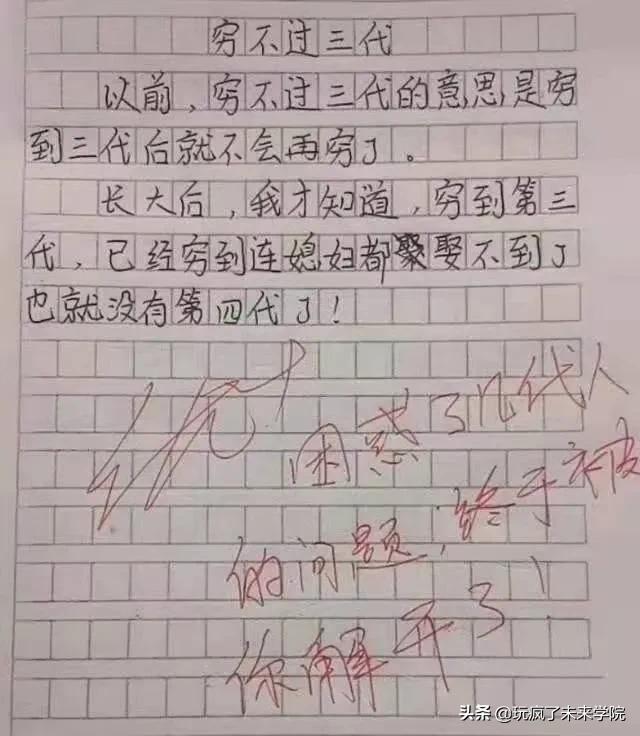 穷不过三代
以前，穷不过三代的意思是穷
到三代后就不会再穷了。
长大后，我才知道，穷到第三
代，已经穷到连媳妇都娶不到了
也就没有第四代了！
优+
困惑了几代人
的问题，终于被
你解开了！
头条 @玩疯了未来学院